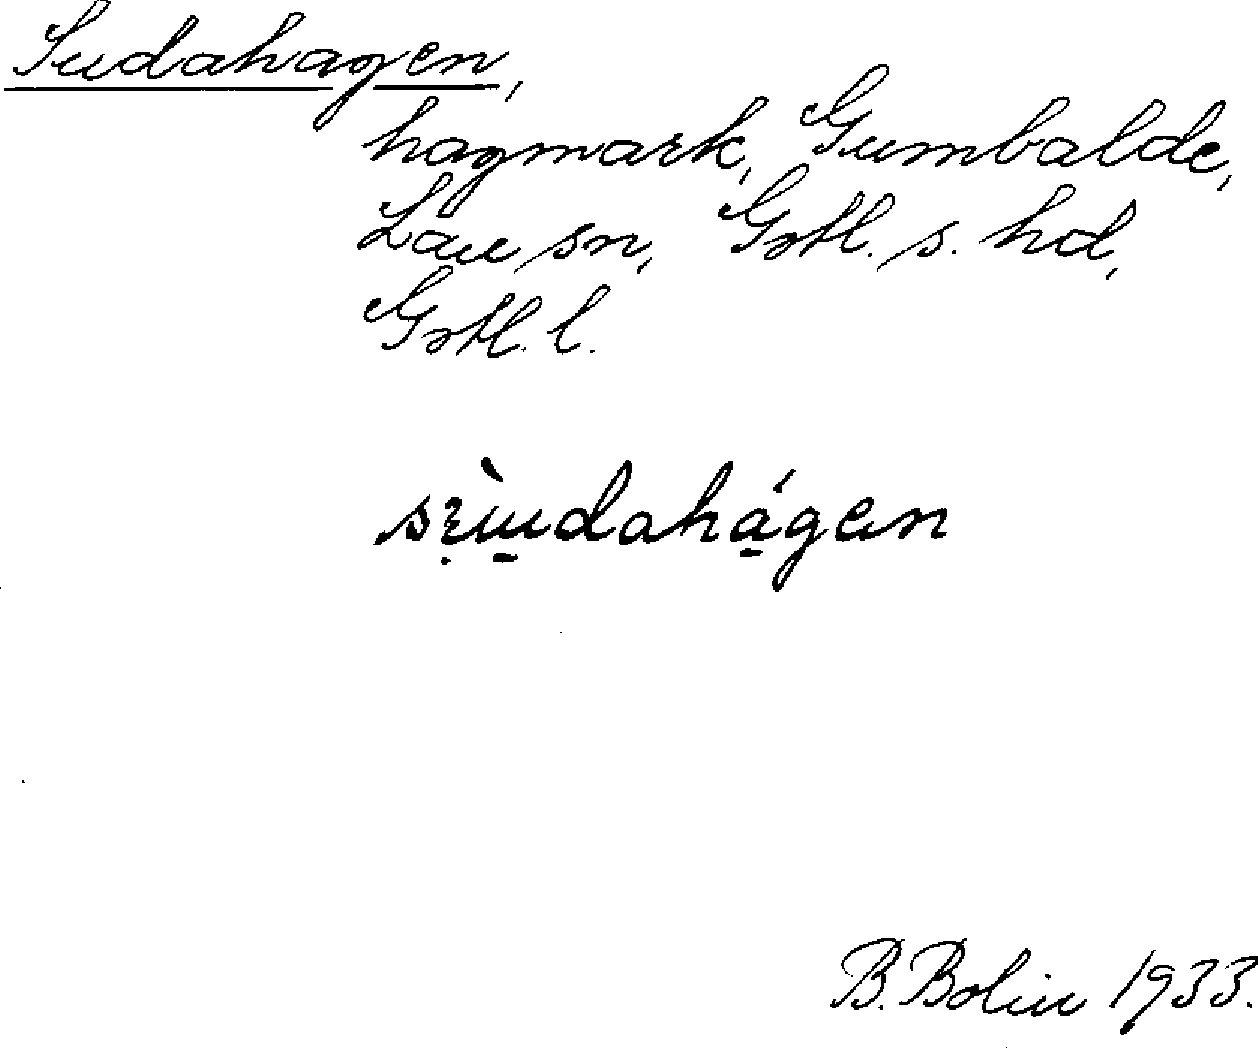 Sudahagen,
hagmark, Gumbalde,
Lau sn, Gotl. s. hd,
Gotl. l.
B. Bolin 1933.